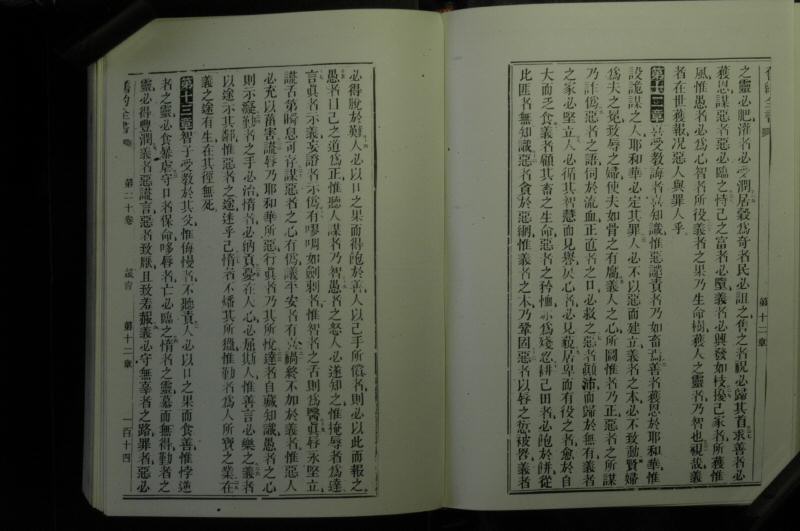 第十二章
之靈必肥灌者必受潤居穀爲奇者民必詛之售之者祝必歸其首求善者必
獲恩謀惡者惡必臨之恃己之富者必墮義者必興發如枝擾己家者所獲惟
風惟愚者必爲心智者所役義者之果乃生命樹獲人之靈者乃智也視哉義
者在世獲報况惡人與罪人乎
第十二章喜受教誨者喜知識惟惡譴責者乃如畜焉善者獲恩於耶和華惟
設詭謀之人耶和華必定其罪人必不以惡而建立義者之本必不致動賢婦
爲夫之冕致辱之婦使夫如骨之有腐義人之心所圖惟者乃正惡者之所謀
乃詐僞惡者之語伺於流血正直者之口必救之惡者顛沛而歸於無有義者
之家必堅立人必循其智慧而見譽戾心者必見藐居卑而有役之者愈於自
大而乏食義者顧其畜之生命惡者之矜憮亦爲殘忍耕己田者必飽於餅從
比匪者無知識惡者貪於惡網惟義者之本乃鞏固惡者以辱之愆被罟義者
必得脫於艱人必以口之果而得飽於善人以己手所償者則必以此而報之
愚者目己之道爲正惟聽人謀者乃智愚者之怒人必遂知之惟掩辱者爲達
言真者示義妄證者示僞有嘐啁如劍刺者惟智者之舌則爲醫真辱永堅立
謊舌第瞬息可存謀惡者之心有僞議平安者有喜禍終不加於義者惟惡人
必充以菑害謊辱乃耶和華所惡行真者乃其所悅達者自藏知識愚者之心
則示癡勤者之手必治惰者必納貢憂在人心必屈斯人惟善言必樂之義者
以途示其鄰惟惡者之途迷乎己惰者不燔其所獵惟勤者爲人所寶之業在
義之途有生在其徑無死
第十三章智子受教於其父惟侮慢者不聽責人必以口之果而食善惟悖逆
者之靈必食暴虐守口者保命哆辱者亡必臨之惰者之靈慕而無得勤者之
靈必得豐潤義者惡謊言惡者致厭且致羞赧義必守無辜者之路罪者惡必
第二十卷
箴言
第十二章
一百十四